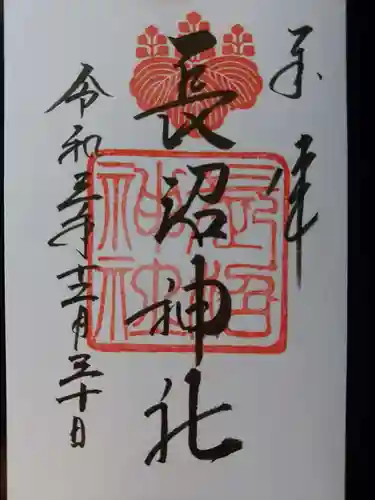 奉拝
長沼神社
長沼神社
令和三年十二月三十日